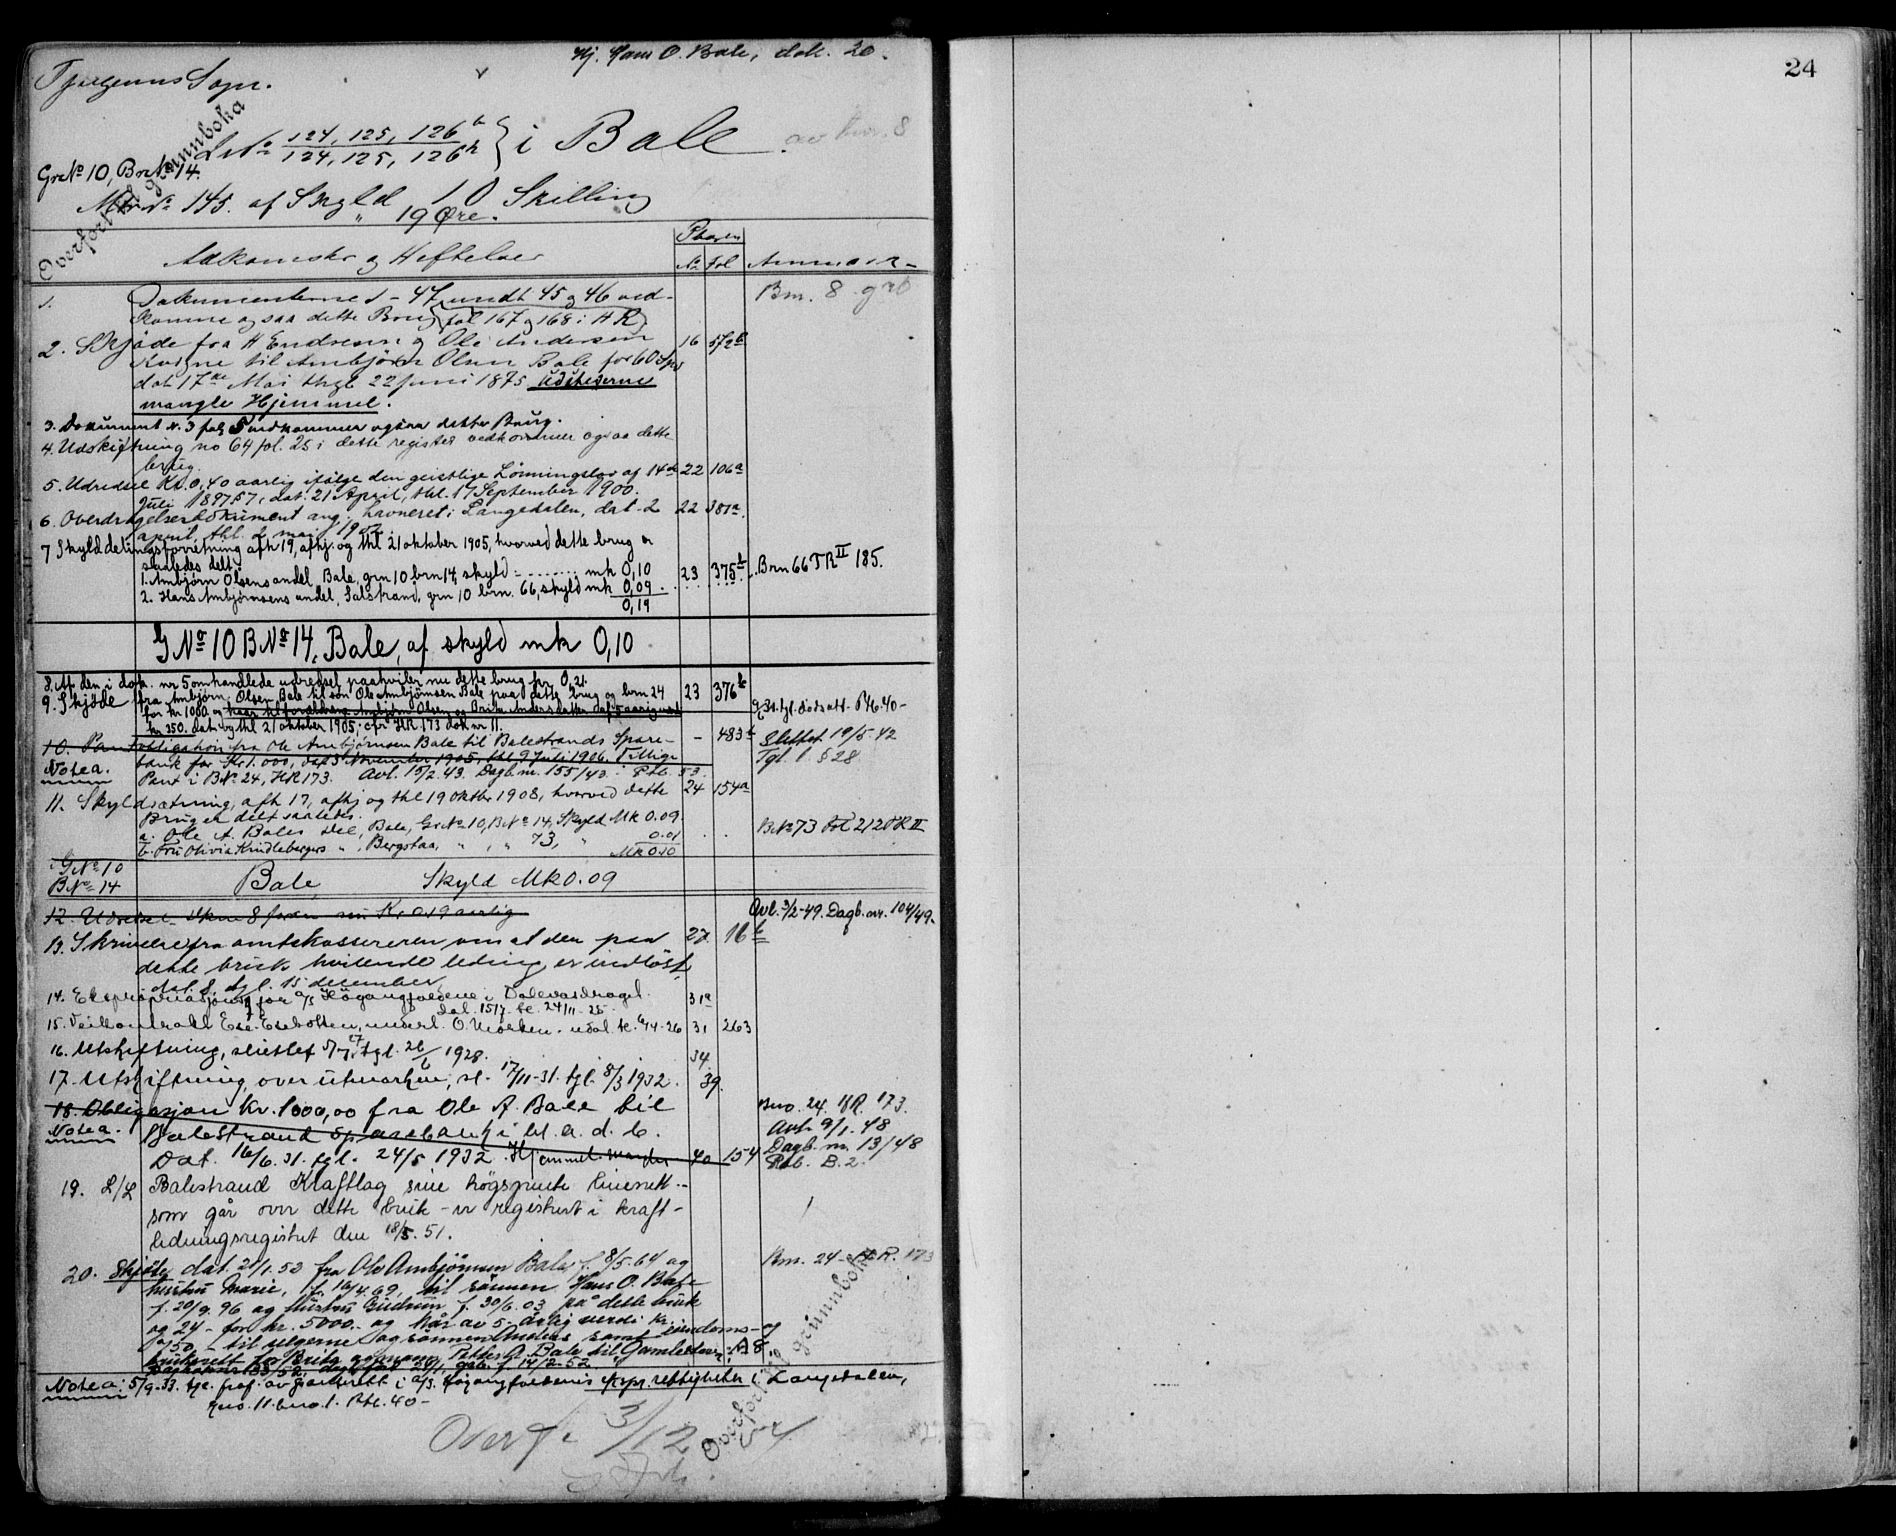 Hj. Hans O. Bale, dok. 20.
Tjugums Sogn.
Overført til grunnboka
L№ 124, 125, 126b / 124, 125, 126h } i Bale av bnr. 8
Gr№ 10, Br№ 14.
Mtr.№ 145. af Skyld 10 Skilling
" 19 Øre.
Adkomster og Heftelser
Pbogen
№ fol Anmærk-
1. Dokumenterne 1-47, undt 45 og 46 ved- Bm. 8 grb
komme ogsaa dette Brug (fol 167 og 168 i HR)
2. Skjøde fra H Endresen og Ole Andersen 16 572b
til Ambjørn Olsen Bale for 60 Spd
dat 17de Mai thgl 22 Juni 1875 Udstederne
mangle Hjemmel.
3. Dokument №. 3 fol 5 vedkommer ogsaa dette Brug.
4. Udskiftning no 64 fol. 25 i dette register vedkommer ogsaa dette
brug.
5. Udredsel Kr. 0,40 aarlig ifølge den geistlige Lønningslov af 14de 22 106a
Juli 1897 § 7, dat. 21 April, thl. 17 September 1900.
6. Overdragelsesdokument ang. havneret i Langedalen, dat. 2 22 381a.
april, thl. 2 mai 1902.
7 Skylddelingsforretning afh 19, afhj. og thl 21 oktober 1905, hvorved dette brug er
saaledes delt:
1. Ambjørn Olsens andel, Bale, grn 10 brn 14, skyld ........ mk 0,10 23 375b Brn 66 TR II 185.
2. Hans Ambjørnsens andel, Salstrand, grn 10 brn. 66, skyld mk 0,09
0,19
G№ 10 B№ 14, Bale, af skyld mk 0,10
8. Af den i dok. nr 5 omhandlede udredsel paahviler nu dette brug kr 0,21.
9. Skjøde fra Ambjørn Olsen Bale til søn Ole Ambjørnsen Bale paa dette brug og brn 24 23 376b
for kr 1000. og kaar til forældrene Ambjørn Olsen og Brita Andersdatter af 5 aarig værdi
kr 350. dat og thl 21 oktober 1905, cfr HR 173 dok nr 11.
10. Pantobligation fra Ole Ambjørnsen Bale til Balestrands Spare- - 483b Slettet 19/5-42
bank for Kr 1.000, dat 3 November 1905, thl 9 Juli 1906. Tillige Tgl. l. § 28
Notea. Pant i B№ 24, HR 173. Avl. 15/2.43. Dagb.nr. 155/43. Ptb. 53.
11. Skyldsætning, afh 17, afhj og thl 19 Oktbr 1908, hvorved dette 24 154a
Brug er delt saaledes:
a. Ole A. Bales Del, Bale, Gr№ 10, B№ 14, Skyld Mk 0.09
b. Fru Olivia Kindlebergers ", Bergstaa, " , " 73, " 0.01 B№ 73 Fol 212 TR II
Mk 0.10
G№ 10
B№ 14 Bale, Skyld Mk 0.09
12. Udredsel dkm 8 foran nu Kr 0.19 aarlig Avl. 3/2-49. Dagb.nr. 104/49.
13. Skrivelse fra amtskassereren om at den paa 27 16b
dette bruk hvilende leding er indløst,
dat. 8. tgl. 15 december
14. Ekspropriasjon for A/S Høgangfossene i Dalevasdraget. 31a
dat. 15/7 tl. 24/11-25.
15. Veikontrakt Ese-Esebotten, underl. O. Morken. udat. tl. 6/4-26 31 263
16. Utskiftning, sluttet 5/7-27 tgl. 26/6 1928. 34
17. Utskiftning over utmarken, sl. 17/11-31. tgl. 8/3 1932. 39.
18. Obligasjon Kr. 1000,00 fra Ole A. Bale til Bno. 24. HR. 173.
Notea. Balestrand Sparebank i bl. a. d. b. Avl. 9/1. 48
Dat. 16/6.31. tgl. 24/5 1932. Hjemmel mangler 40 154 Dagb. nr. 13/48
Ptb. B. 2.
19. L/L Balestrand Kraftlag sine høgspente linenett -
som går over dette bruk - er registrert i kraft-
ledningsregistret den 18/5. 51.
20. Skjøte dat. 21/1.53 fra Ole Ambjørnsen Bale, f. 8/5.64 og Bm. 24 - H.R. 173
hustru Marie, f. 16/4.69, til sønnen Hans O. Bale
f. 20/9.96 og hustru Gudrun f. 30/6.03 på dette bruk
og 24 - for kr. 5000.- og kår av 5-årlig verdi kr.
- til selgerne og sønnen Anders samt eiendoms- og
bruksrett for Brita og mann Petter A. Bale til Gamlestova. A 8.
Notea: 5/9-33. tgl. A/S Høgangfossenes ekspr. rettigheter i Langedalen,
gno. 11. bno. 1. Ptb. 40 -
Overf. 3/12
Overført til grunnboka
24